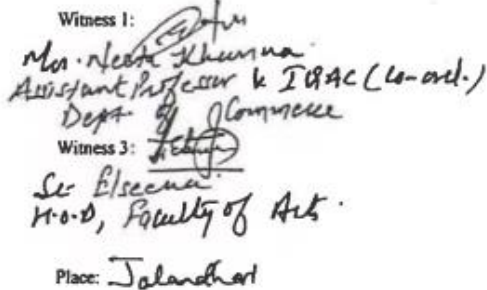 Witness 1:
Mrs. Neeta Khanna
Assistant Professor & IQAC (Co-ord.)
Dept of Commerce
Witness 3:
Sr. Elseena
H.O.D, Faculty of Arts.
Place: Jalandhar